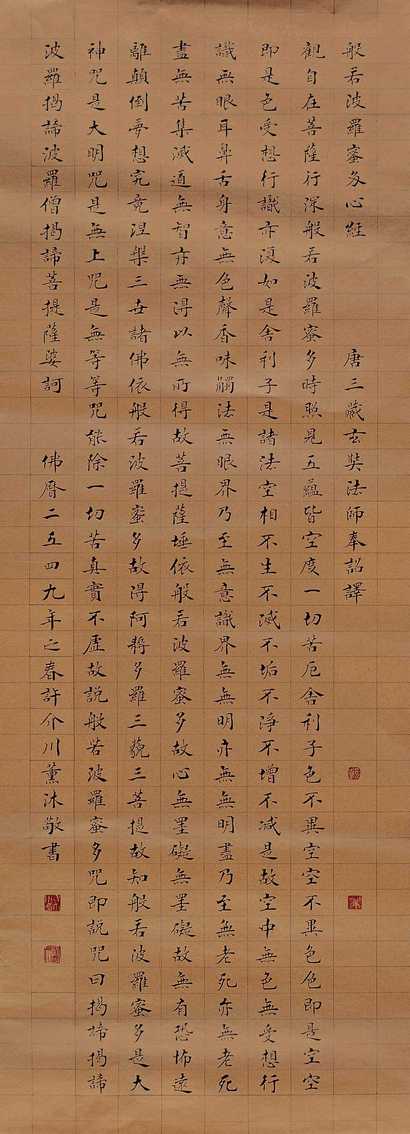 般若波羅蜜多心經 唐三藏玄奘法師奉詔譯
觀自在菩薩行深般若波羅蜜多時照見五蘊皆空度一切苦厄舍利子色不異空空不異色色即是空空
即是色受想行識亦復如是舍利子是諸法空相不生不滅不垢不淨不增不減是故空中無色無受想行
識無眼耳鼻舌身意無色聲香味觸法無眼界乃至無意識界無無明亦無無明盡乃至無老死亦無老死
盡無苦集滅道無智亦無得以無所得故菩提薩埵依般若波羅蜜多故心無罣礙無罣礙故無有恐怖遠
離顛倒夢想究竟涅槃三世諸佛依般若波羅蜜多故得阿耨多羅三藐三菩提故知般若波羅蜜多是大
神咒是大明咒是無上咒是無等等咒能除一切苦真實不虛故說般若波羅蜜多咒即說咒曰揭諦揭諦
波羅揭諦波羅僧揭諦菩提薩婆訶 佛曆二五四九年之春許介川薰沐敬書